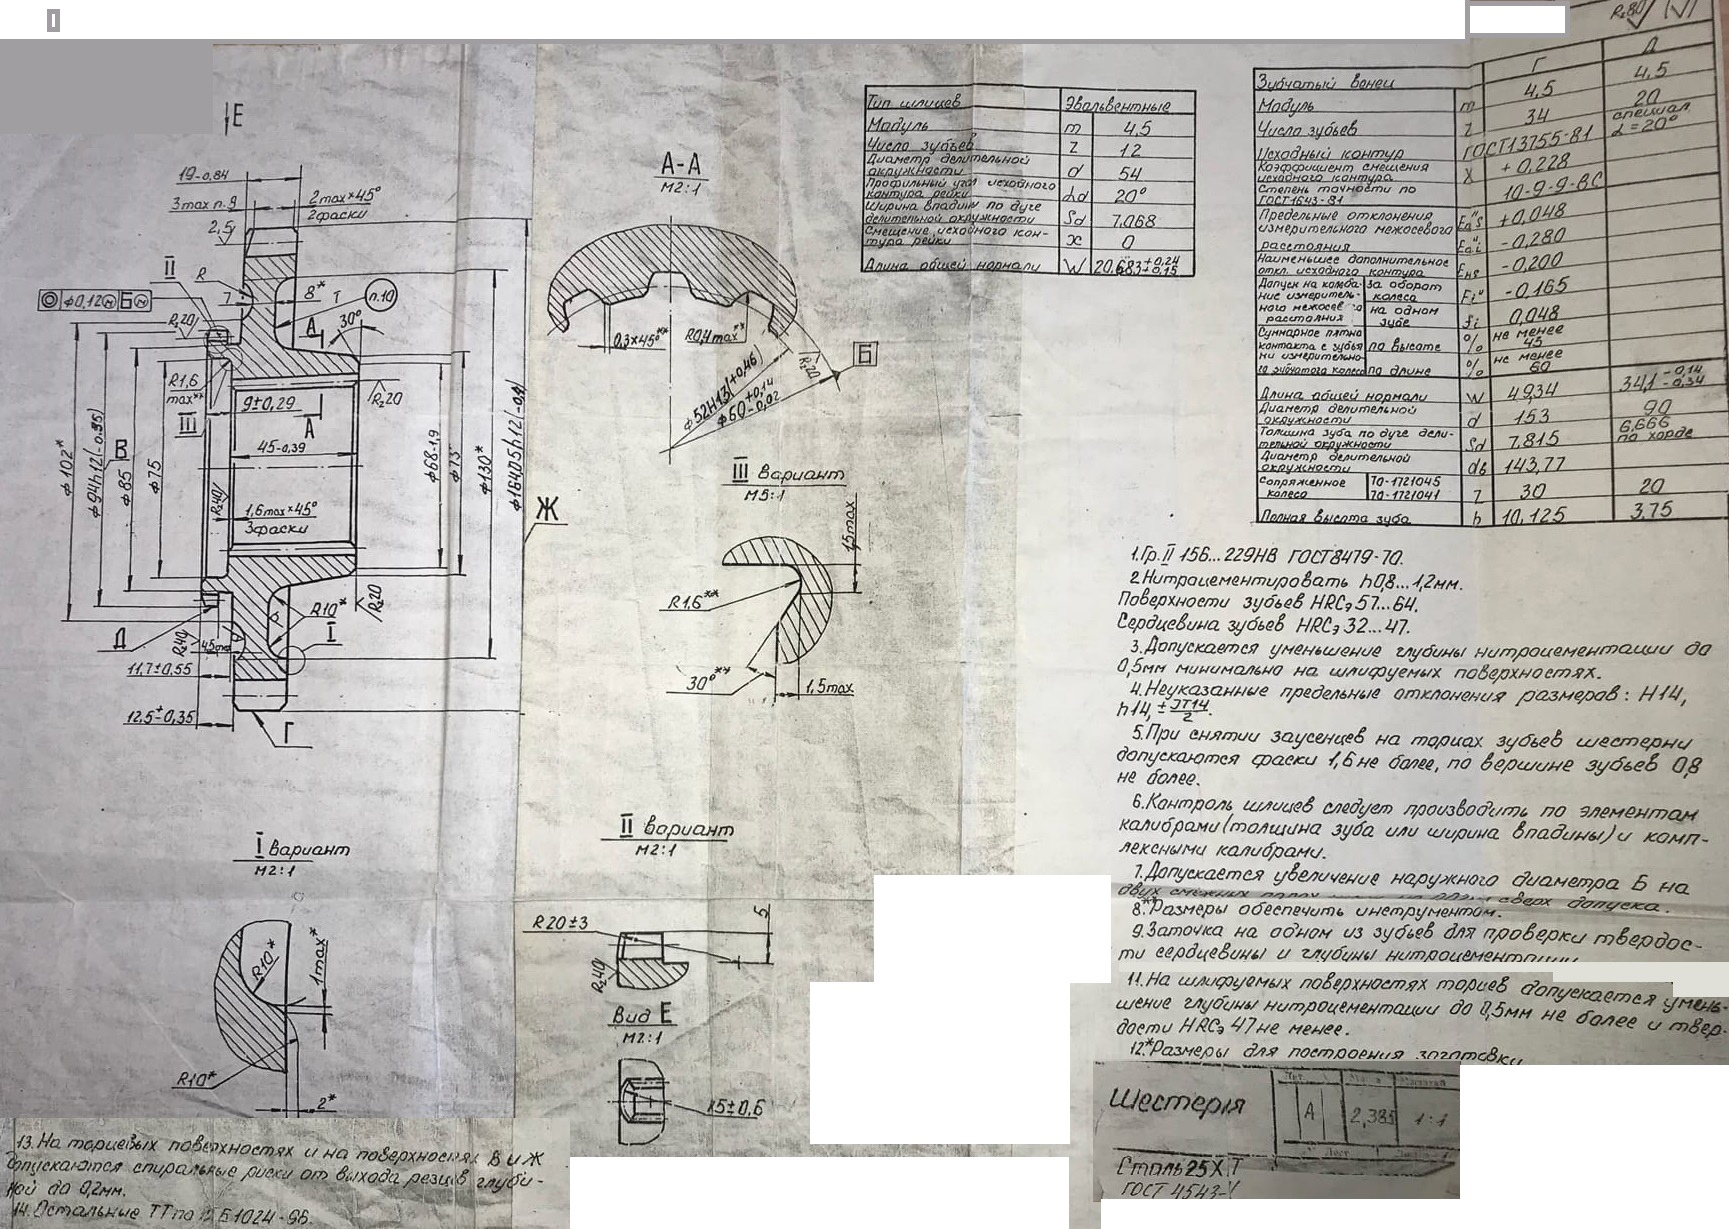 E
19-0,84
3max п.9
2max×45°
2фаски
2,5
II
R
7
8*
T
п.10
⌀0,12 Б
Rz20
A
30°
R1,6
max**
III
9±0,29
A
Rz20
45-0,39
⌀102*
⌀94h12(-0,35)
В
⌀85
⌀75
Rz40
1,6max×45°
3фаски
⌀68-1,9
⌀75
⌀130*
Ж
R10*
Rz20
I
Д
Rz40
11,7±0,55
12,5±0,35
Г
A-A
М2:1
0,3×45°**
R0,4max**
Rz20
Б
⌀52H13(+0,46)
⌀60+0,14
-0,02
III вариант
М5:1
1,5max
R1,6**
30°**
1,5max
I вариант
М2:1
R10*
1max*
R10*
2*
II вариант
М2:1
R20±3
5
Rz40
Вид Е
М2:1
R5±0,6
Тип шлицев Эвальвентные
Модуль m 4,5
Число зубьев z 12
Диаметр делительной
окружности d 54
Профильный угол исходного
контура рейки αd 20°
Ширина впадины по дуге
делительной окружности Sd 7,068
Смещение исходного кон-
тура рейки x 0
Длина общей нормали W 20,683+0,24
+0,15
Rz80
Зубчатый венец Г Д
Модуль m 4,5 4,5
Число зубьев z 34 20
Исходный контур ГОСТ13755-81 специал.
α=20°
Коэффициент смещения
исходного контура X +0,228
Степень точности по
ГОСТ1643-81 10-9-9-Вс
Предельные отклонения
измерительного межосевого
расстояния Ea"s +0,048
Ea"i -0,280
Наименьшее дополнительное
откл. исходного контура Eнs -0,200
Допуск на колеба-
ние измеритель-
ного межосевого
расстояния
за оборот
колеса Fi" -0,165
на одном
зубе fi 0,048
Суммарное пятно
контакта с зубья
ни измерительно-
го зубчатого колеса
по высоте % не менее
45
по длине % не менее
60
Длина общей нормали W 49,34 34,1-0,14
-0,34
Диаметр делительной
окружности d 153 90
Толщина зуба по дуге дели-
тельной окружности Sd 7,815 6,666
по хорде
Диаметр делительной
окружности dв 143,77
Сопряженное
колесо
70-1721045
70-1721041 z 30 20
Полная высота зуба h 10,125 3,75
1.Гр.II 156...229НВ ГОСТ8479-70.
2.Нитроцементировать h0,8...1,2мм.
Поверхности зубьев HRCэ57...64.
Сердцевина зубьев HRCэ32...47.
3.Допускается уменьшение глубины нитроцементации до
0,5мм минимально на шлифуемых поверхностях.
4.Неуказанные предельные отклонения размеров: H14,
h14, ±IT14/2.
5.При снятии заусенцев на торцах зубьев шестерни
допускаются фаски 1,6 не более, по вершине зубьев 0,8
не более.
6.Контроль шлицев следует производить по элементам
калибрами(толщина зуба или ширина впадины) и комп-
лексными калибрами.
7.Допускается увеличение наружного диаметра Б на
двух смежных сверх допуска.
8.**Размеры обеспечить инструментом.
9.Заточка на одном из зубьев для проверки твердос-
ти сердцевины и глубины нитроцементации
11.На шлифуемых поверхностях торцев допускается умень-
шение глубины нитроцементации до 0,5мм не более и твер-
дости HRCэ 47 не менее.
12.*Размеры для построения заготовки
Шестерня
А 2,385 1:1
Сталь25Х Т
ГОСТ 4543-
13.На торцевых поверхностях и на поверхностях В и Ж
допускаются спиральные риски от выхода резцов глуби-
ной до 0,2мм.
14.Остальные ТТ по Б1024-96.